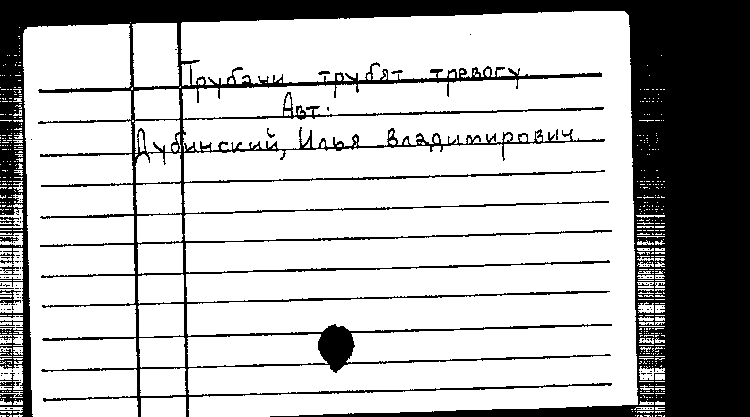 Трубачи трубят тревогу.
Авт:
Дубинский, Илья Владимирович.